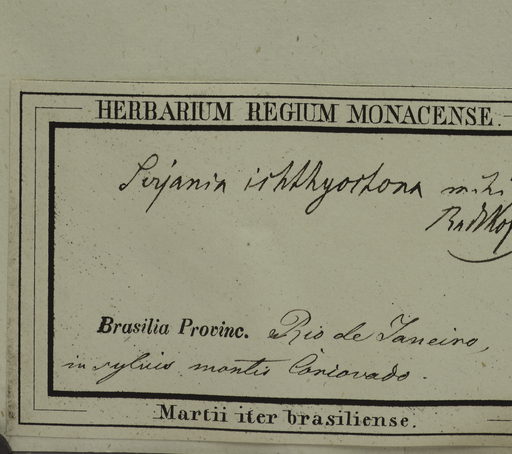 HERBARIUM REGIUM MONACENSE.
Serjania ichthyoctona mihi
Radlkof
Brasilia Provinc. Rio de Janeiro,
in sylvis montis Corcovado.
Martii iter brasiliense.